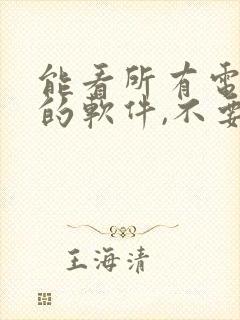 能看所有電
的軟件,不要
王海清